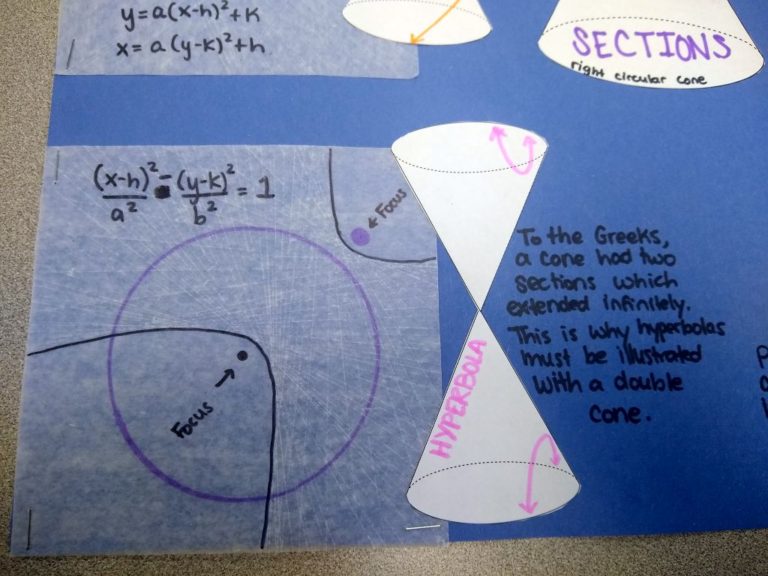 y=a(x-h)²+k
x=a(y-k)²+h
SECTIONS
right circular cone
(x-h)²/a² - (y-k)²/b² = 1
←Focus
Focus
HYPERBOLA
To the Greeks,
a cone had two
sections which
extended infinitely.
This is why hyperbolas
must be illustrated
with a double
cone.